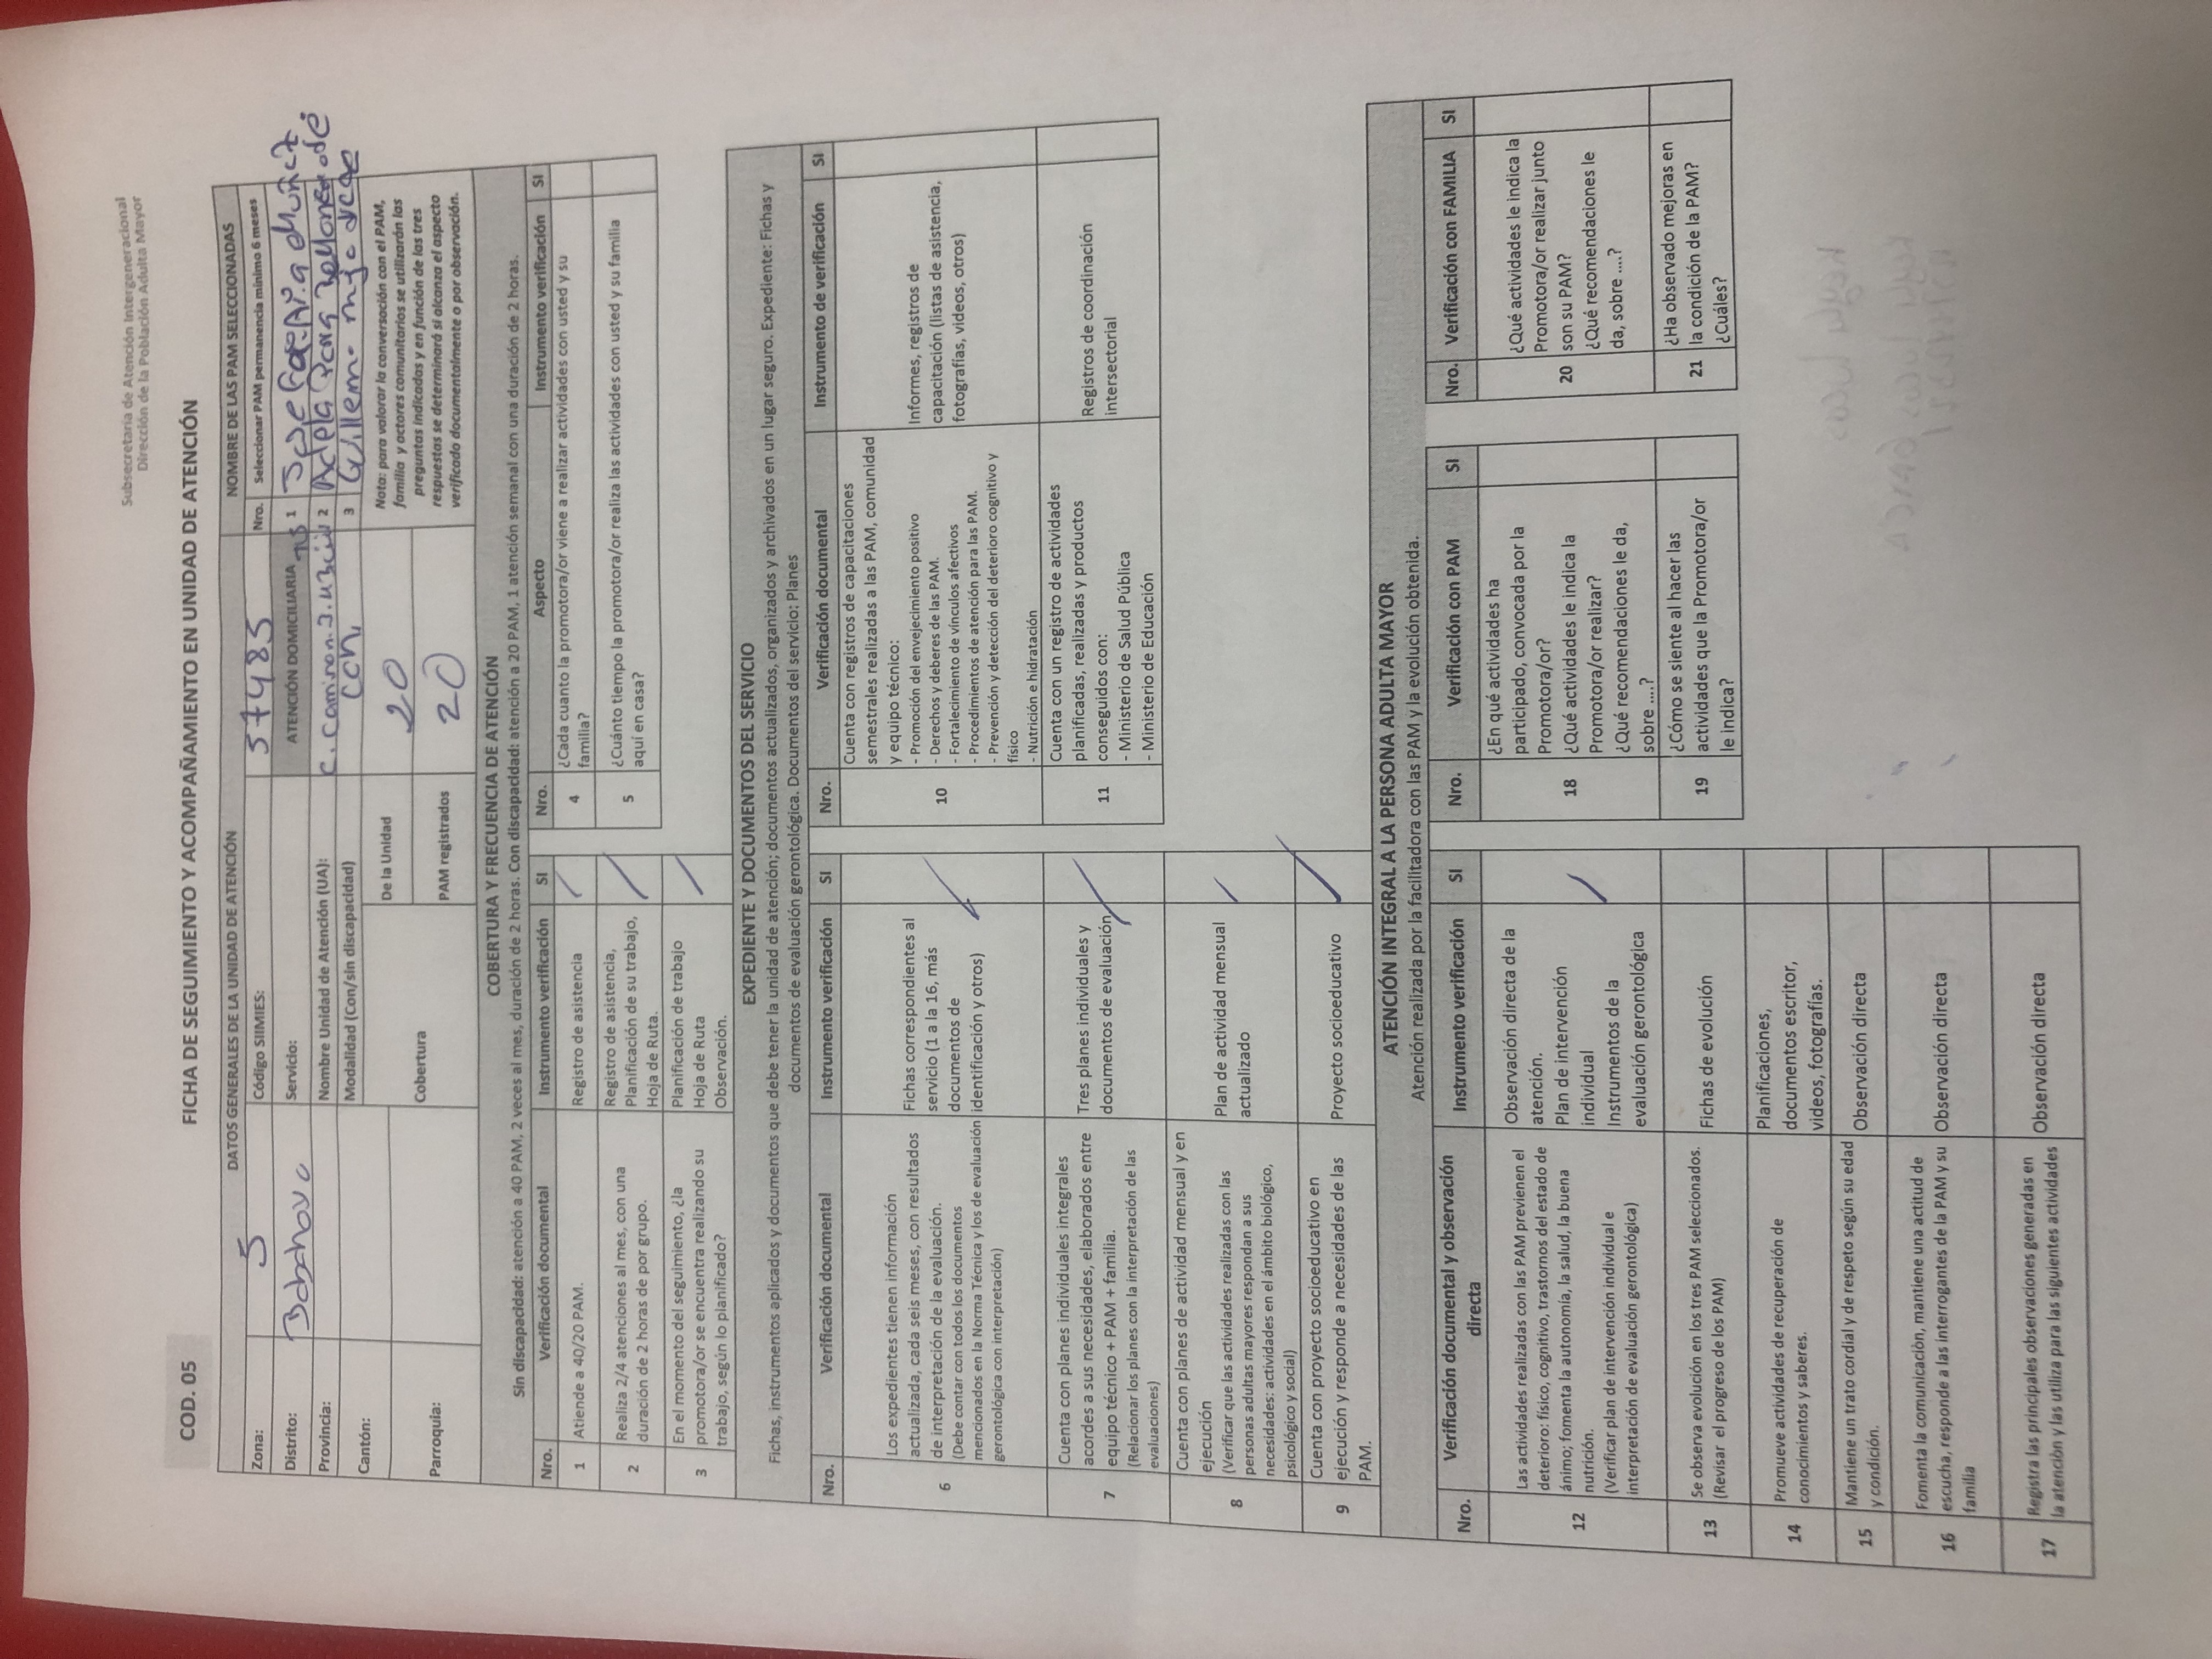 Subsecretaría de Atención Intergeneracional
Dirección de la Población Adulta Mayor
COD. 05
FICHA DE SEGUIMIENTO Y ACOMPAÑAMIENTO EN UNIDAD DE ATENCIÓN
DATOS GENERALES DE LA UNIDAD DE ATENCIÓN
NOMBRE DE LAS PAM SELECCIONADAS
Zona: 5
Código SIIMIES: 57485
Nro. Seleccionar PAM permanencia mínimo 6 meses
Distrito: Babahoyo
Servicio: ATENCIÓN DOMICILIARIA
1
Provincia:
Nombre Unidad de Atención (UA):
2 Adela
Cantón:
Modalidad (Con/sin discapacidad) con
3
Parroquia:
Cobertura
De la Unidad 20
PAM registrados 20
Nota: para valorar la conversación con el PAM,
familia y actores comunitarios se utilizarán las
preguntas indicadas y en función de las tres
respuestas se determinará si alcanza el aspecto
verificado documentalmente o por observación.
COBERTURA Y FRECUENCIA DE ATENCIÓN
Sin discapacidad: atención a 40 PAM, 2 veces al mes, duración de 2 horas. Con discapacidad: atención a 20 PAM, 1 atención semanal con una duración de 2 horas.
Nro. Verificación documental Instrumento verificación SI
1 Atiende a 40/20 PAM. Registro de asistencia /
2 Realiza 2/4 atenciones al mes, con una
duración de 2 horas de por grupo.
Registro de asistencia,
Planificación de su trabajo,
Hoja de Ruta.
/
3 En el momento del seguimiento, ¿la
promotora/or se encuentra realizando su
trabajo, según lo planificado?
Planificación de trabajo
Hoja de Ruta
Observación.
/
Nro. Aspecto Instrumento verificación SI
4 ¿Cada cuanto la promotora/or viene a realizar actividades con usted y su
familia?
5 ¿Cuánto tiempo la promotora/or realiza las actividades con usted y su familia
aquí en casa?
EXPEDIENTE Y DOCUMENTOS DEL SERVICIO
Fichas, instrumentos aplicados y documentos que debe tener la unidad de atención; documentos actualizados, organizados y archivados en un lugar seguro. Expediente: Fichas y
documentos de evaluación gerontológica. Documentos del servicio: Planes
Nro. Verificación documental Instrumento verificación SI
6 Los expedientes tienen información
actualizada, cada seis meses, con resultados
de interpretación de la evaluación.
(Debe contar con todos los documentos
mencionados en la Norma Técnica y los de evaluación
gerontológica con interpretación)
Fichas correspondientes al
servicio (1 a la 16, más
documentos de
identificación y otros)
/
7 Cuenta con planes individuales integrales
acordes a sus necesidades, elaborados entre
equipo técnico + PAM + familia.
(Relacionar los planes con la interpretación de las
evaluaciones)
Tres planes individuales y
documentos de evaluación
/
8 Cuenta con planes de actividad mensual y en
ejecución
(Verificar que las actividades realizadas con las
personas adultas mayores respondan a sus
necesidades: actividades en el ámbito biológico,
psicológico y social)
Plan de actividad mensual
actualizado
/
9 Cuenta con proyecto socioeducativo en
ejecución y responde a necesidades de las
PAM.
Proyecto socioeducativo
/
Nro. Verificación documental Instrumento de verificación SI
10 Cuenta con registros de capacitaciones
semestrales realizadas a las PAM, comunidad
y equipo técnico:
- Promoción del envejecimiento positivo
- Derechos y deberes de las PAM.
- Fortalecimiento de vínculos afectivos
- Procedimientos de atención para las PAM.
- Prevención y detección del deterioro cognitivo y
físico
- Nutrición e hidratación
Informes, registros de
capacitación (listas de asistencia,
fotografías, videos, otros)
11 Cuenta con un registro de actividades
planificadas, realizadas y productos
conseguidos con:
- Ministerio de Salud Pública
- Ministerio de Educación
Registros de coordinación
intersectorial
ATENCIÓN INTEGRAL A LA PERSONA ADULTA MAYOR
Atención realizada por la facilitadora con las PAM y la evolución obtenida.
Nro. Verificación documental y observación
directa
Instrumento verificación SI
12 Las actividades realizadas con las PAM previenen el
deterioro: físico, cognitivo, trastornos del estado de
ánimo; fomenta la autonomía, la salud, la buena
nutrición.
(Verificar plan de intervención individual e
interpretación de evaluación gerontológica)
Observación directa de la
atención.
Plan de intervención
individual
Instrumentos de la
evaluación gerontológica
/
13 Se observa evolución en los tres PAM seleccionados.
(Revisar el progreso de los PAM)
Fichas de evolución
14 Promueve actividades de recuperación de
conocimientos y saberes.
Planificaciones,
documentos escritor,
videos, fotografías.
15 Mantiene un trato cordial y de respeto según su edad
y condición.
Observación directa
16 Fomenta la comunicaciòn, mantiene una actitud de
escucha, responde a las interrogantes de la PAM y su
familia
Observación directa
17 Registra las principales observaciones generadas en
la atención y las utiliza para las siguientes actividades
Observación directa
Nro. Verificación con PAM SI
18 ¿En qué actividades ha
participado, convocada por la
Promotora/or?
¿Qué actividades le indica la
Promotora/or realizar?
¿Qué recomendaciones le da,
sobre ....?
19 ¿Cómo se siente al hacer las
actividades que la Promotora/or
le indica?
Nro. Verificación con FAMILIA SI
20 ¿Qué actividades le indica la
Promotora/or realizar junto
son su PAM?
¿Qué recomendaciones le
da, sobre ....?
21 ¿Ha observado mejoras en
la condición de la PAM?
¿Cuáles?